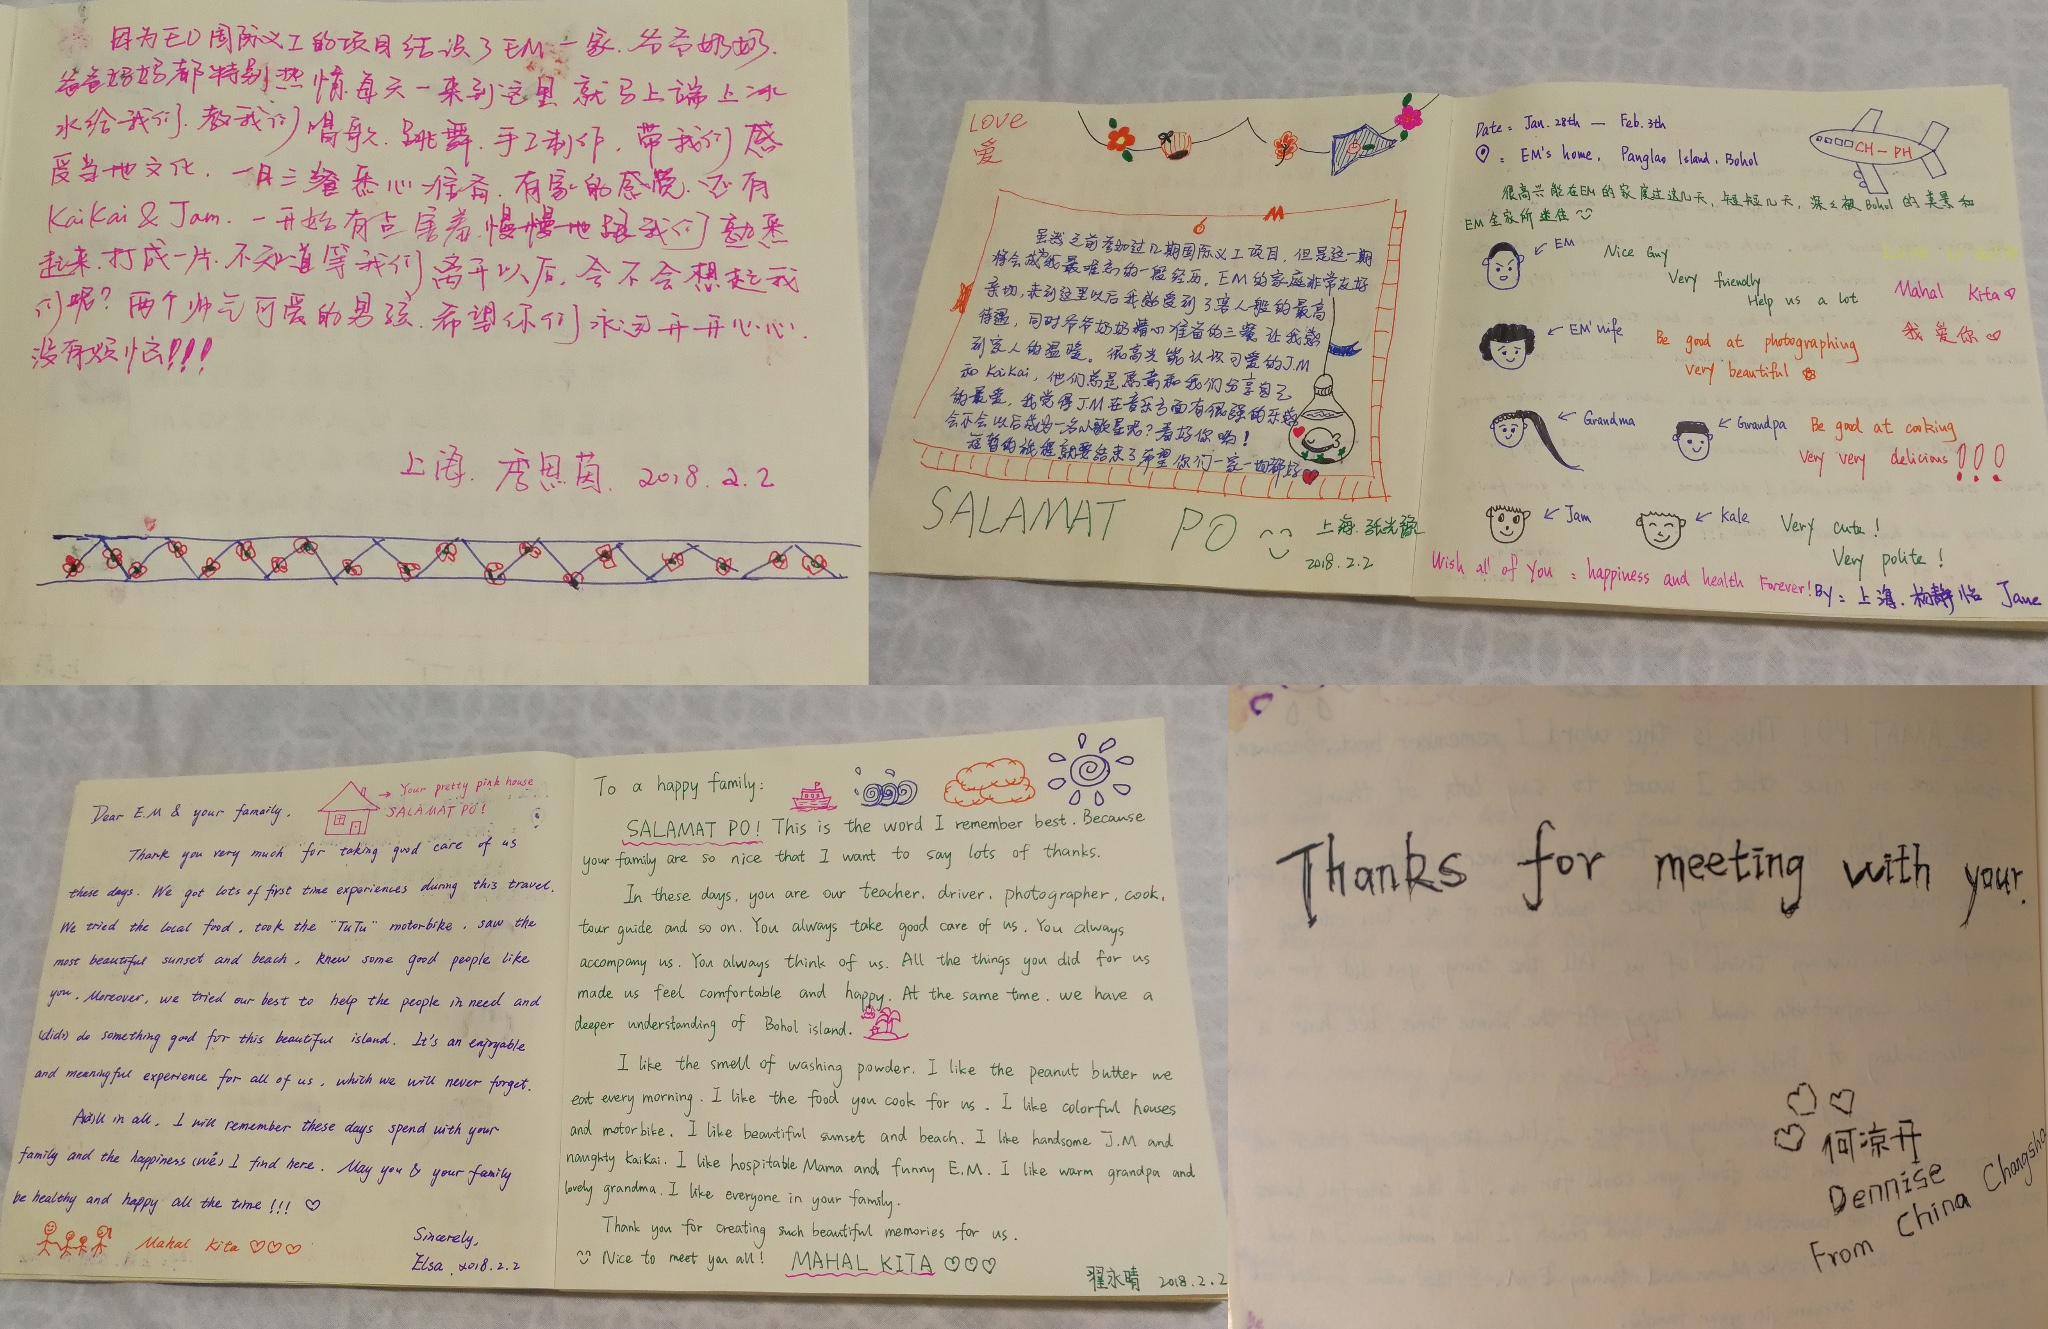 因为ED国际义工的项目结识了EM一家.爷爷奶奶.
爸爸妈妈都特别热情.每天一来到这里就马上端上冰
水给我们.教我们唱歌.跳舞.手工制作.带我们感
受当地文化.一日三餐悉心准备.有家的感觉.还有
KaiKai & Jam.一开始有点害羞.慢慢地跟我们熟悉
起来.打成一片.不知道等我们离开以后,会不会想起我
们呢?两个帅气可爱的男孩.希望你们永远开开心心.
没有烦恼!!!
上海. 李思茵. 2018.2.2
LOVE
爱
虽然之前参加过几期国际义工项目,但是这一期
将会成为我最难忘的一段经历。EM的家庭非常友好
亲切,来到这里以后我感受到了客人般的最高
待遇,同时爷爷奶奶精心准备的三餐让我感
到家人的温暖。很高兴能认识可爱的J.M
和KaiKai,他们总是愿意和我们分享自己
的最爱,我觉得J.M在音乐方面有很强的乐感
会不会以后成为一名歌星呢?看好你哟!
短暂的旅程就要结束了希望你们一家一切都好
SALAMAT PO
上海.
2018.2.2
Date: Jan. 28th — Feb. 3th
: EM's home, Panglao Island, Bohol
CH-PH
很高兴能在EM的家度过这几天,短短几天,深深被Bohol的美景和
EM全家所迷住
EM
Nice Guy
Very friendly
Help us a lot
Mahal Kita
我爱你
EM'wife
Be good at photographing
very beautiful
Grandma
Grandpa
Be good at cooking
Very very delicious!!!
Jam
Kale
Very cute!
Very polite!
Wish all of You: happiness and health Forever!
By: 上海.杨静怡 Jane
Dear E.M & your famaily,
→ Your pretty pink house
SALAMAT PO!
Thank you very much for taking good care of us
these days. We got lots of first time experiences during this travel.
We tried the local food, took the "TuTu" motorbike, saw the
most beautiful sunset and beach, knew some good people like
you. Moreover, we tried our best to help the people in need and
(did) do something good for this beautiful island. It's an enjoyable
and meaningful experience for all of us, which we will never forget.
All in all, I will remember these days spend with your
family and the happiness (we) I find here. May you & your family
be healthy and happy all the time!!!
Mahal Kita
Sincerely,
Elsa. 2018.2.2
To a happy family:
SALAMAT PO! This is the word I remember best. Because
your family are so nice that I want to say lots of thanks.
In these days, you are our teacher, driver, photographer, cook,
tour guide and so on. You always take good care of us. You always
accompany us. You always think of us. All the things you did for us
made us feel comfortable and happy. At the same time, we have a
deeper understanding of Bohol island.
I like the smell of washing powder. I like the peanut butter we
eat every morning. I like the food you cook for us. I like colorful houses
and motorbike. I like beautiful sunset and beach. I like handsome J.M and
naughty KaiKai. I like hospitable Mama and funny E.M. I like warm grandpa and
lovely grandma. I like everyone in your family.
Thank you for creating such beautiful memories for us.
Nice to meet you all! MAHAL KITA
翟永晴 2018.2.2
Thanks for meeting with your.
何凉开
Dennise
From China Changsha